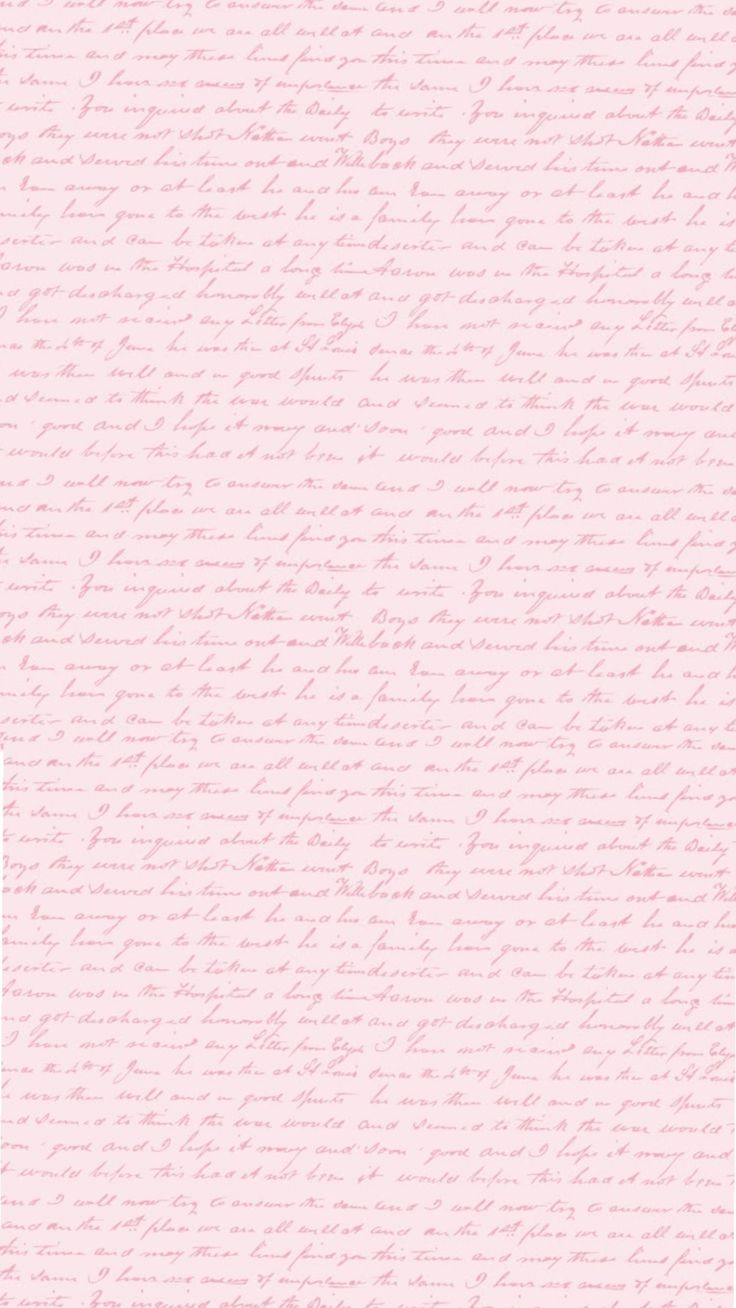 and I will now try to answer the same and I will now try to answer the
and in the 1st place we are all well at and in the 1st place we are all well
this time and may these lines find you this time and may these lines find
the same I have no of importance the same I have no of importance
write . You inquired about the Daily to write . You inquired about the Daily
Boys they were not shot Nathan went Boys they were not shot Nathan went
and served his time out and and served his time out and
away or at least he and his away or at least he and
family have gone to the west he is a family have gone to the west he is
deserter and can be taken at any time deserter and can be taken at any
Aaron was in the Hospital a long time Aaron was in the Hospital a long
and got discharged honorably well at and got discharged honorably well
I have not any Letter from I have not any Letter from
the 4th of June he was then at St Louis the 4th of June he was then at St Louis
was then well and in good spirits he was then well and in good spirits
and seemed to think the war would and seemed to think the war would
good and I hope it may and soon good and I hope it may
would before this had it not been it would before this had it not been
and I will now try to answer the same and I will now try to answer the
and in the 1st place we are all well at and in the 1st place we are all well
this time and may these lines find you this time and may these lines find
the same I have no of importance the same I have no of importance
write . You inquired about the Daily to write . You inquired about the Daily
Boys they were not shot Nathan went Boys they were not shot Nathan went
and served his time out and and served his time out and
away or at least he and his away or at least he and
family have gone to the west he is a family have gone to the west he is
deserter and can be taken at any time deserter and can be taken at any
and I will now try to answer the same and I will now try to answer the
and in the 1st place we are all well at and in the 1st place we are all well at
this time and may these lines find you this time and may these lines find
the same I have no of importance the same I have no of importance
to write . You inquired about the Daily to write . You inquired about the Daily
Boys they were not shot Nathan went Boys they were not shot Nathan went
and served his time out and and served his time out and
away or at least he and his away or at least he and his
family have gone to the west he is a family have gone to the west he is a
deserter and can be taken at any time deserter and can be taken at any
Aaron was in the Hospital a long time Aaron was in the Hospital a long
and got discharged honorably well at and got discharged honorably well at
I have not any Letter from I have not any Letter from
the 4th of June he was then at St Louis the 4th of June he was then at St Louis
he was then well and in good spirits he was then well and in good spirits
and seemed to think the war would and seemed to think the war would
soon good and I hope it may and soon good and I hope it may and
it would before this had it not been it would before this had it not been
and I will now try to answer the same and I will now try to answer the
and in the 1st place we are all well at and in the 1st place we are all well
this time and may these lines find you this time and may these lines find
the same I have no of importance the same I have no of importance
to write . You inquired about the Daily to write . You inquired about the Daily